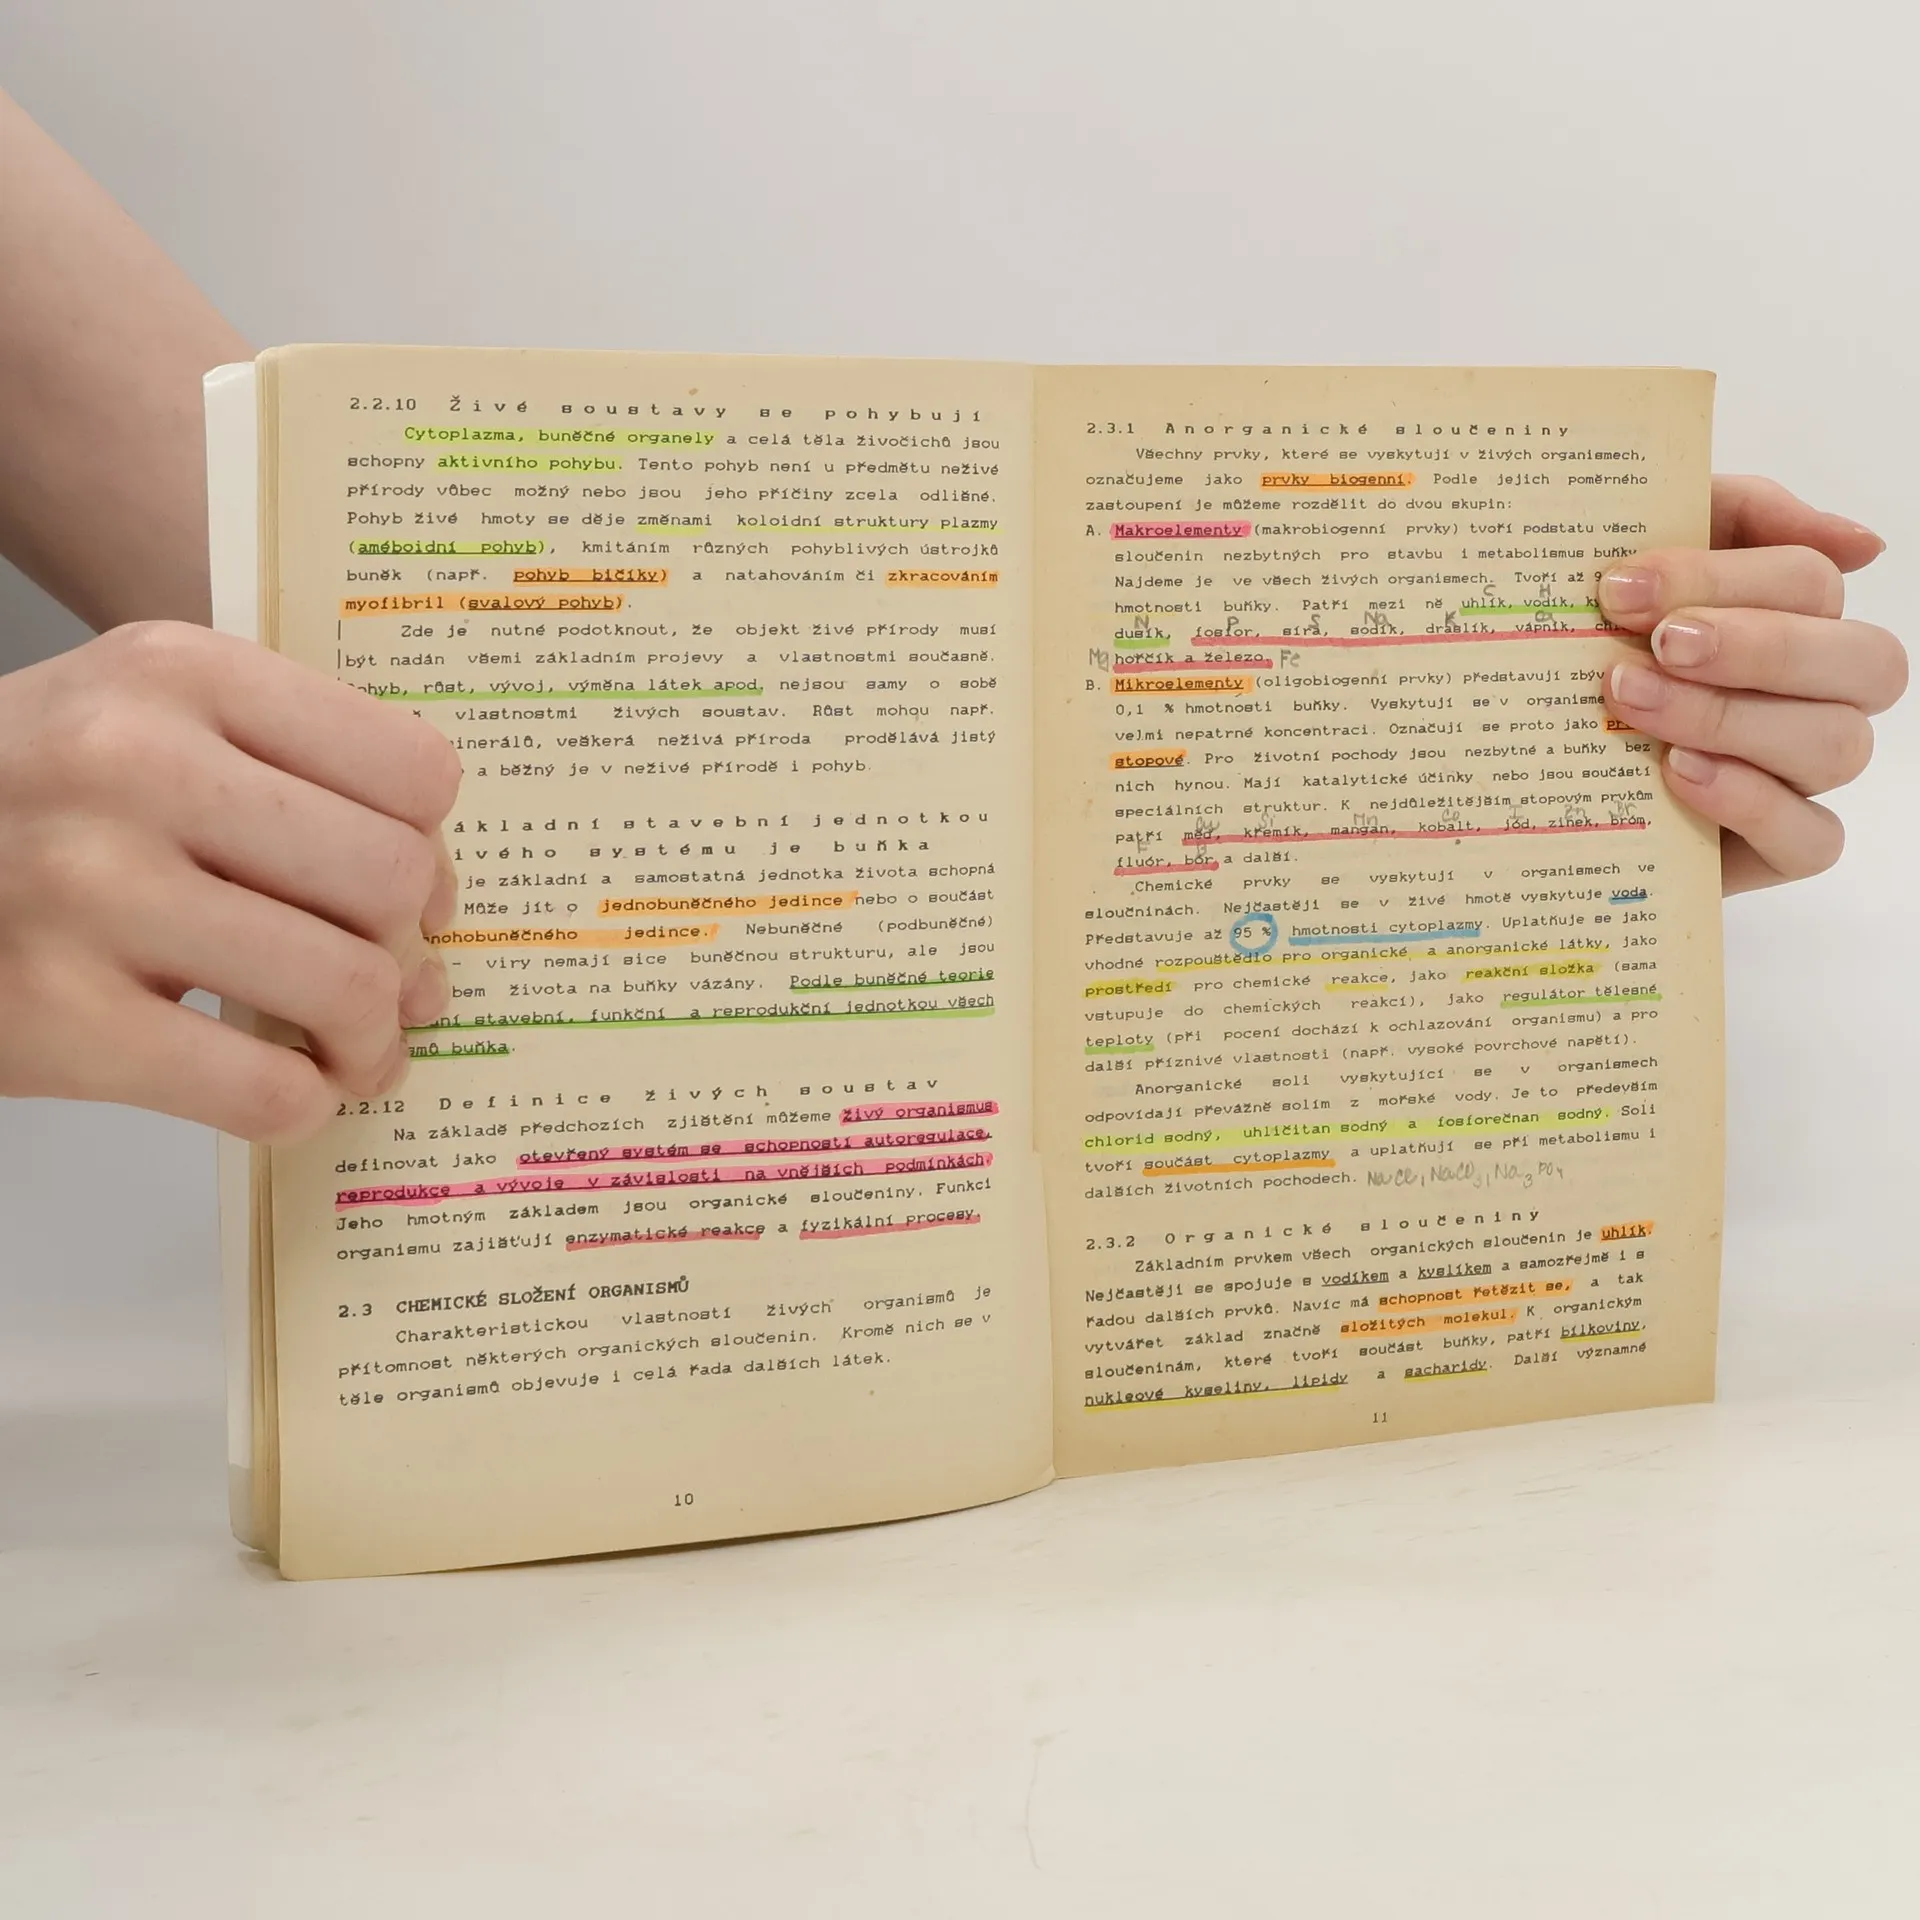 2.2.10 Živé soustavy se pohybují
Cytoplazma, buněčné organely a celá těla živočichů jsou
schopny aktivního pohybu. Tento pohyb není u předmětu neživé
přírody vůbec možný nebo jsou jeho příčiny zcela odlišné.
Pohyb živé hmoty se děje změnami koloidní struktury plazmy
(améboidní pohyb), kmitáním různých pohyblivých ústrojků
buněk (např. pohyb bičíky) a natahováním či zkracováním
myofibril (svalový pohyb).
Zde je nutné podotknout, že objekt živé přírody musí
být nadán všemi základním projevy a vlastnostmi současně.
Pohyb, růst, vývoj, výměna látek apod. nejsou samy o sobě
vlastnostmi živých soustav. Růst mohou např.
veškerá neživá příroda prodělává jistý
a běžný je v neživé přírodě i pohyb.
stavební jednotkou
systému je buňka
je základní a samostatná jednotka života schopná
Může jít o jednobuněčného jedince nebo o součást
jedince. Nebuněčné (podbuněčné)
- viry nemají sice buněčnou strukturu, ale jsou
života na buňky vázány. Podle buněčné teorie
stavební, funkční a reprodukční jednotkou všech
buňka.
2.2.12 Definice živých soustav
Na základě předchozích zjištění můžeme živý organismus
definovat jako otevřený systém se schopností autoregulace,
reprodukce a vývoje v závislosti na vnějších podmínkách.
Jeho hmotným základem jsou organické sloučeniny. Funkci
organismu zajišťují enzymatické reakce a fyzikální procesy.
2.3 CHEMICKÉ SLOŽENÍ ORGANISMŮ
Charakteristickou vlastností živých organismů je
přítomnost některých organických sloučenin. Kromě nich se v
těle organismů objevuje i celá řada dalších látek.
10
2.3.1 Anorganické sloučeniny
Všechny prvky, které se vyskytují v živých organismech,
označujeme jako prvky biogenní. Podle jejich poměrného
zastoupení je můžeme rozdělit do dvou skupin:
A. Makroelementy (makrobiogenní prvky) tvoří podstatu všech
sloučenin nezbytných pro stavbu i metabolismus buňky.
Najdeme je ve všech živých organismech. Tvoří až
C H
hmotnosti buňky. Patří mezi ně uhlík, vodík,
N P S Na K Ca
dusík, fosfor, síra, sodík, draslík, vápník,
Mg hořčík a železo. Fe
B. Mikroelementy (oligobiogenní prvky) představují
0,1 % hmotnosti buňky. Vyskytují se v organisme
velmi nepatrné koncentraci. Označují se proto jako
stopové. Pro životní pochody jsou nezbytné a buňky bez
nich hynou. Mají katalytické účinky nebo jsou součástí
speciálních struktur. K nejdůležitějším stopovým prvkům
Cu Si Mn Co I Zn Br
patří měď, křemík, mangan, kobalt, jód, zinek, bróm,
F B
fluór, bór a další.
Chemické prvky se vyskytují v organismech ve
sloučninách. Nejčastěji se v živé hmotě vyskytuje voda.
Představuje až 95 % hmotnosti cytoplazmy. Uplatňuje se jako
vhodné rozpouštědlo pro organické a anorganické látky, jako
prostředí pro chemické reakce, jako reakční složka (sama
vstupuje do chemických reakcí), jako regulátor tělesné
teploty (při pocení dochází k ochlazování organismu) a pro
další příznivé vlastnosti (např. vysoké povrchové napětí).
Anorganické soli vyskytující se v organismech
odpovídají převážně solím z mořské vody. Je to především
chlorid sodný, uhličitan sodný a fosforečnan sodný. Soli
tvoří součást cytoplazmy a uplatňují se při metabolismu i
dalších životních pochodech. NaCl, NaCO3, Na3PO4
2.3.2 Organické sloučeniny
Základním prvkem všech organických sloučenin je uhlík.
Nejčastěji se spojuje s vodíkem a kyslíkem a samozřejmě i s
řadou dalších prvků. Navíc má schopnost řetězit se, a tak
vytvářet základ značně složitých molekul. K organickým
sloučeninám, které tvoří součást buňky, patří bílkoviny,
nukleové kyseliny, lipidy a sacharidy. Další významné
11